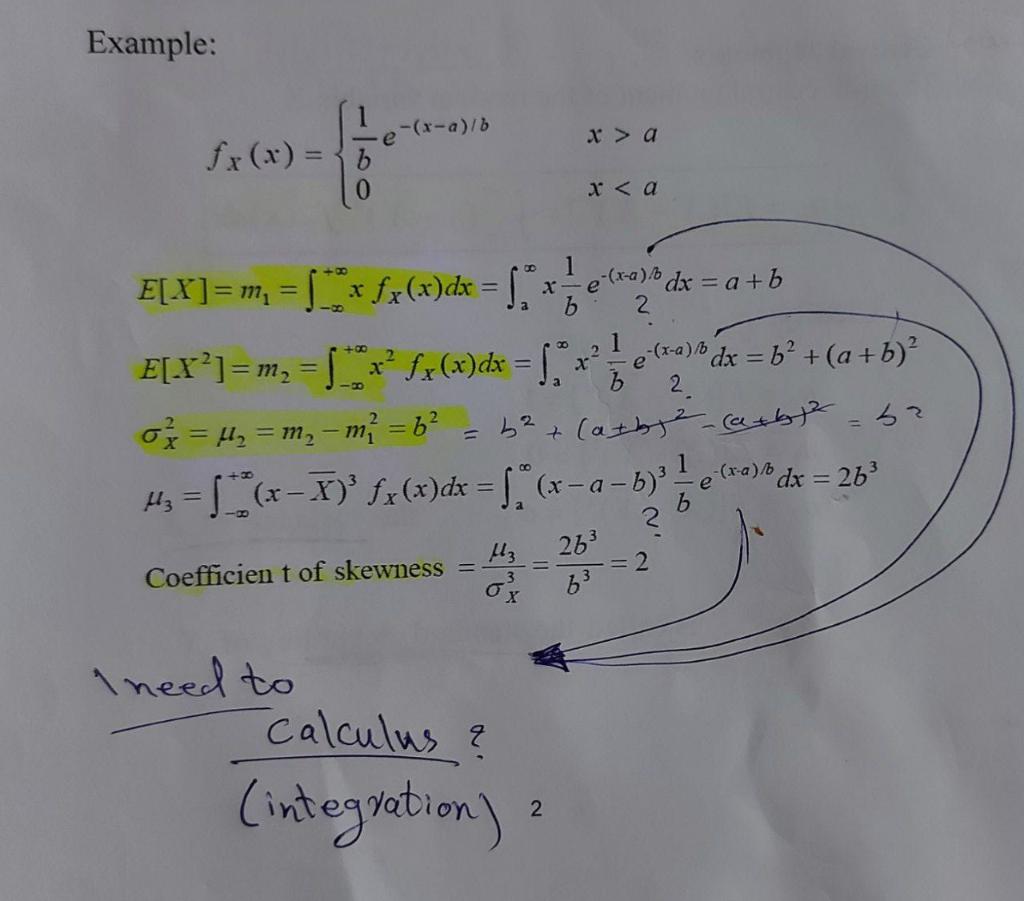 Example:
f_X(x) = { 1/b e^{-(x-a)/b}   x > a
0   x < a
E[X] = m₁ = ∫_{-∞}^{+∞} x f_X(x)dx = ∫_a^∞ x 1/b e^{-(x-a)/b} dx = a + b
?
E[X²] = m₂ = ∫_{-∞}^{+∞} x² f_X(x)dx = ∫_a^∞ x² 1/b e^{-(x-a)/b} dx = b² + (a + b)²
?
σ_X² = μ₂ = m₂ − m₁² = b² = b² + (a+b)² - (a+b)² = b²
μ₃ = ∫_{-∞}^{+∞} (x − X̅)³ f_X(x)dx = ∫_a^∞ (x − a − b)³ 1/b e^{-(x-a)/b} dx = 2b³
?
Coefficien t of skewness = μ₃/σ_X³ = 2b³/b³ = 2
I need to
Calculus ?
(integration)
2